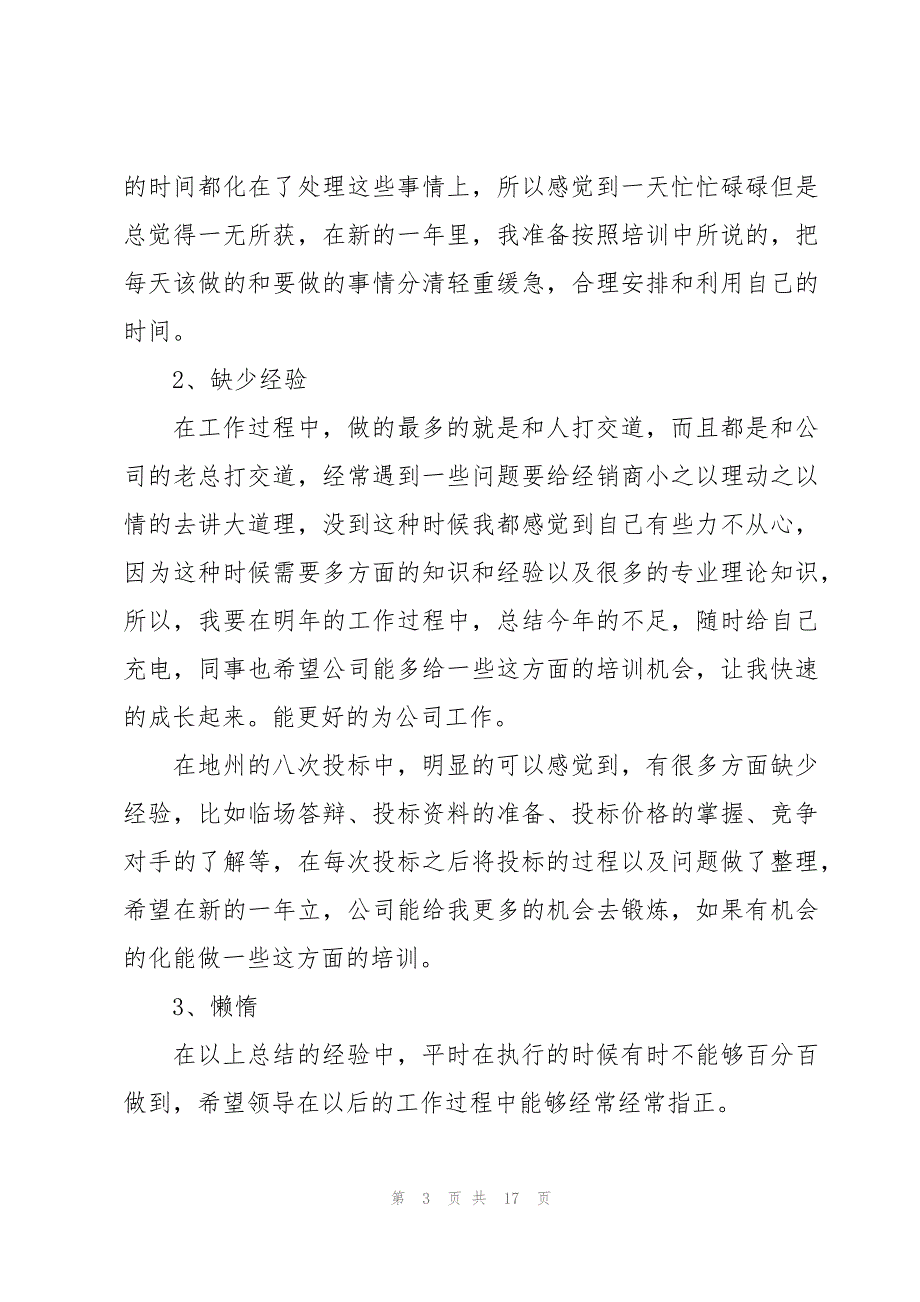 的时间都化在了处理这些事情上，所以感觉到一天忙忙碌碌但是
总觉得一无所获，在新的一年里，我准备按照培训中所说的，把
每天该做的和要做的事情分清轻重缓急，合理安排和利用自己的
时间。
2、缺少经验
在工作过程中，做的最多的就是和人打交道，而且都是和公
司的老总打交道，经常遇到一些问题要给经销商小之以理动之以
情的去讲大道理，没到这种时候我都感觉到自己有些力不从心，
因为这种时候需要多方面的知识和经验以及很多的专业理论知识，
所以，我要在明年的工作过程中，总结今年的不足，随时给自己
充电，同事也希望公司能多给一些这方面的培训机会，让我快速
的成长起来。能更好的为公司工作。
在地州的八次投标中，明显的可以感觉到，有很多方面缺少
经验，比如临场答辩、投标资料的准备、投标价格的掌握、竞争
对手的了解等，在每次投标之后将投标的过程以及问题做了整理，
希望在新的一年立，公司能给我更多的机会去锻炼，如果有机会
的化能做一些这方面的培训。
3、懒惰
在以上总结的经验中，平时在执行的时候有时不能够百分百
做到，希望领导在以后的工作过程中能够经常经常指正。
第 3 页 共 17 页